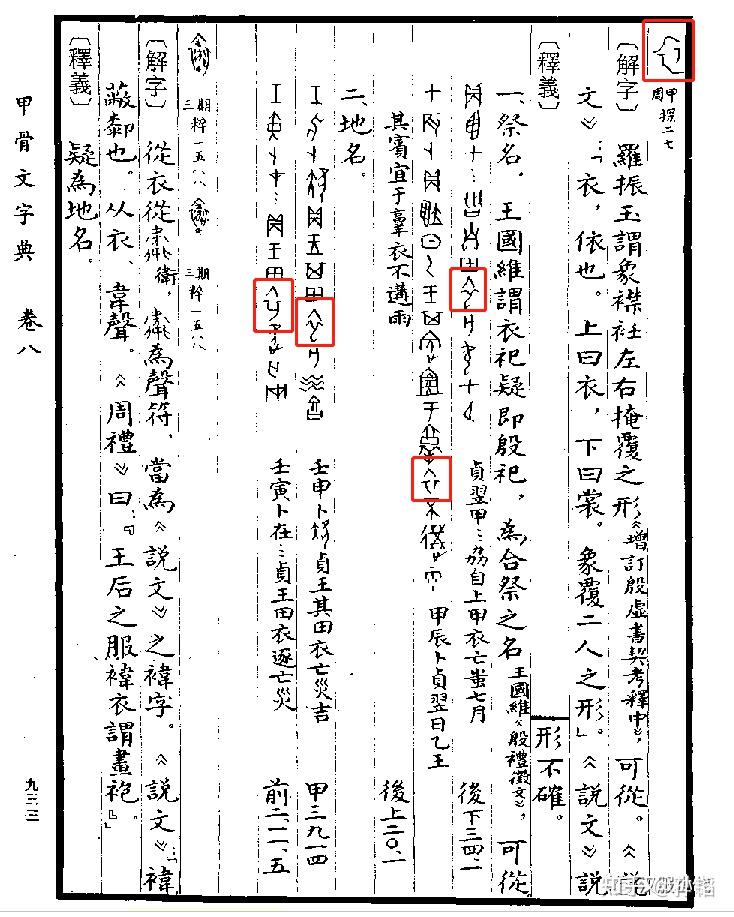 周甲探二七
〔解字〕羅振玉謂象襟衽左右掩覆之形《增訂殷虛書契考釋中》，可從。《說
文》：「衣，依也。上曰衣，下曰裳。象覆二人之形。」《說文》說
形不確。
〔釋義〕
一、祭名，王國維謂衣祀疑即殷祀，為合祭之名王國維《殷禮徵文》，可從
貞翌甲⋯自上甲衣亡蚩七月 後下三四·一
甲辰卜貞翌日乙王
其賓宜于衣不遘雨 後上二〇·一
二、地名。
壬申卜貞王其田衣亡災吉 甲三九一四
壬寅卜在⋯貞王田衣逐亡災 前二·一一·五
三期 三期
〔解字〕從衣從，為聲符，當為《說文》之褘字。《說文》：「褘
蔽厀也。从衣、韋聲。《周禮》曰：『王后之服褘衣謂畫袍』。
〔釋義〕
疑為地名。
甲骨文字典 卷八
九三三
知乎